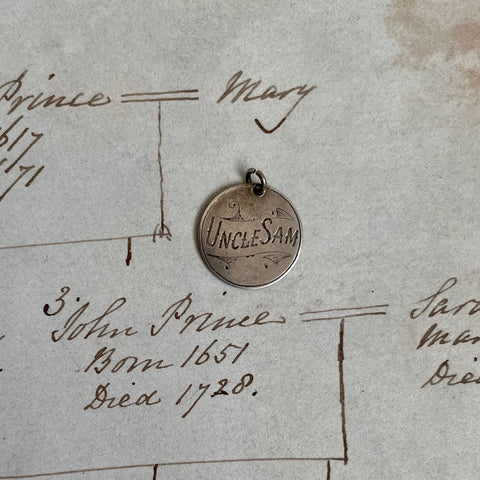 Prince = Mary
1617
1171
UNCLE SAM
3. John Prince = Sara
Born 1651
Died 1728.
Mar
Died